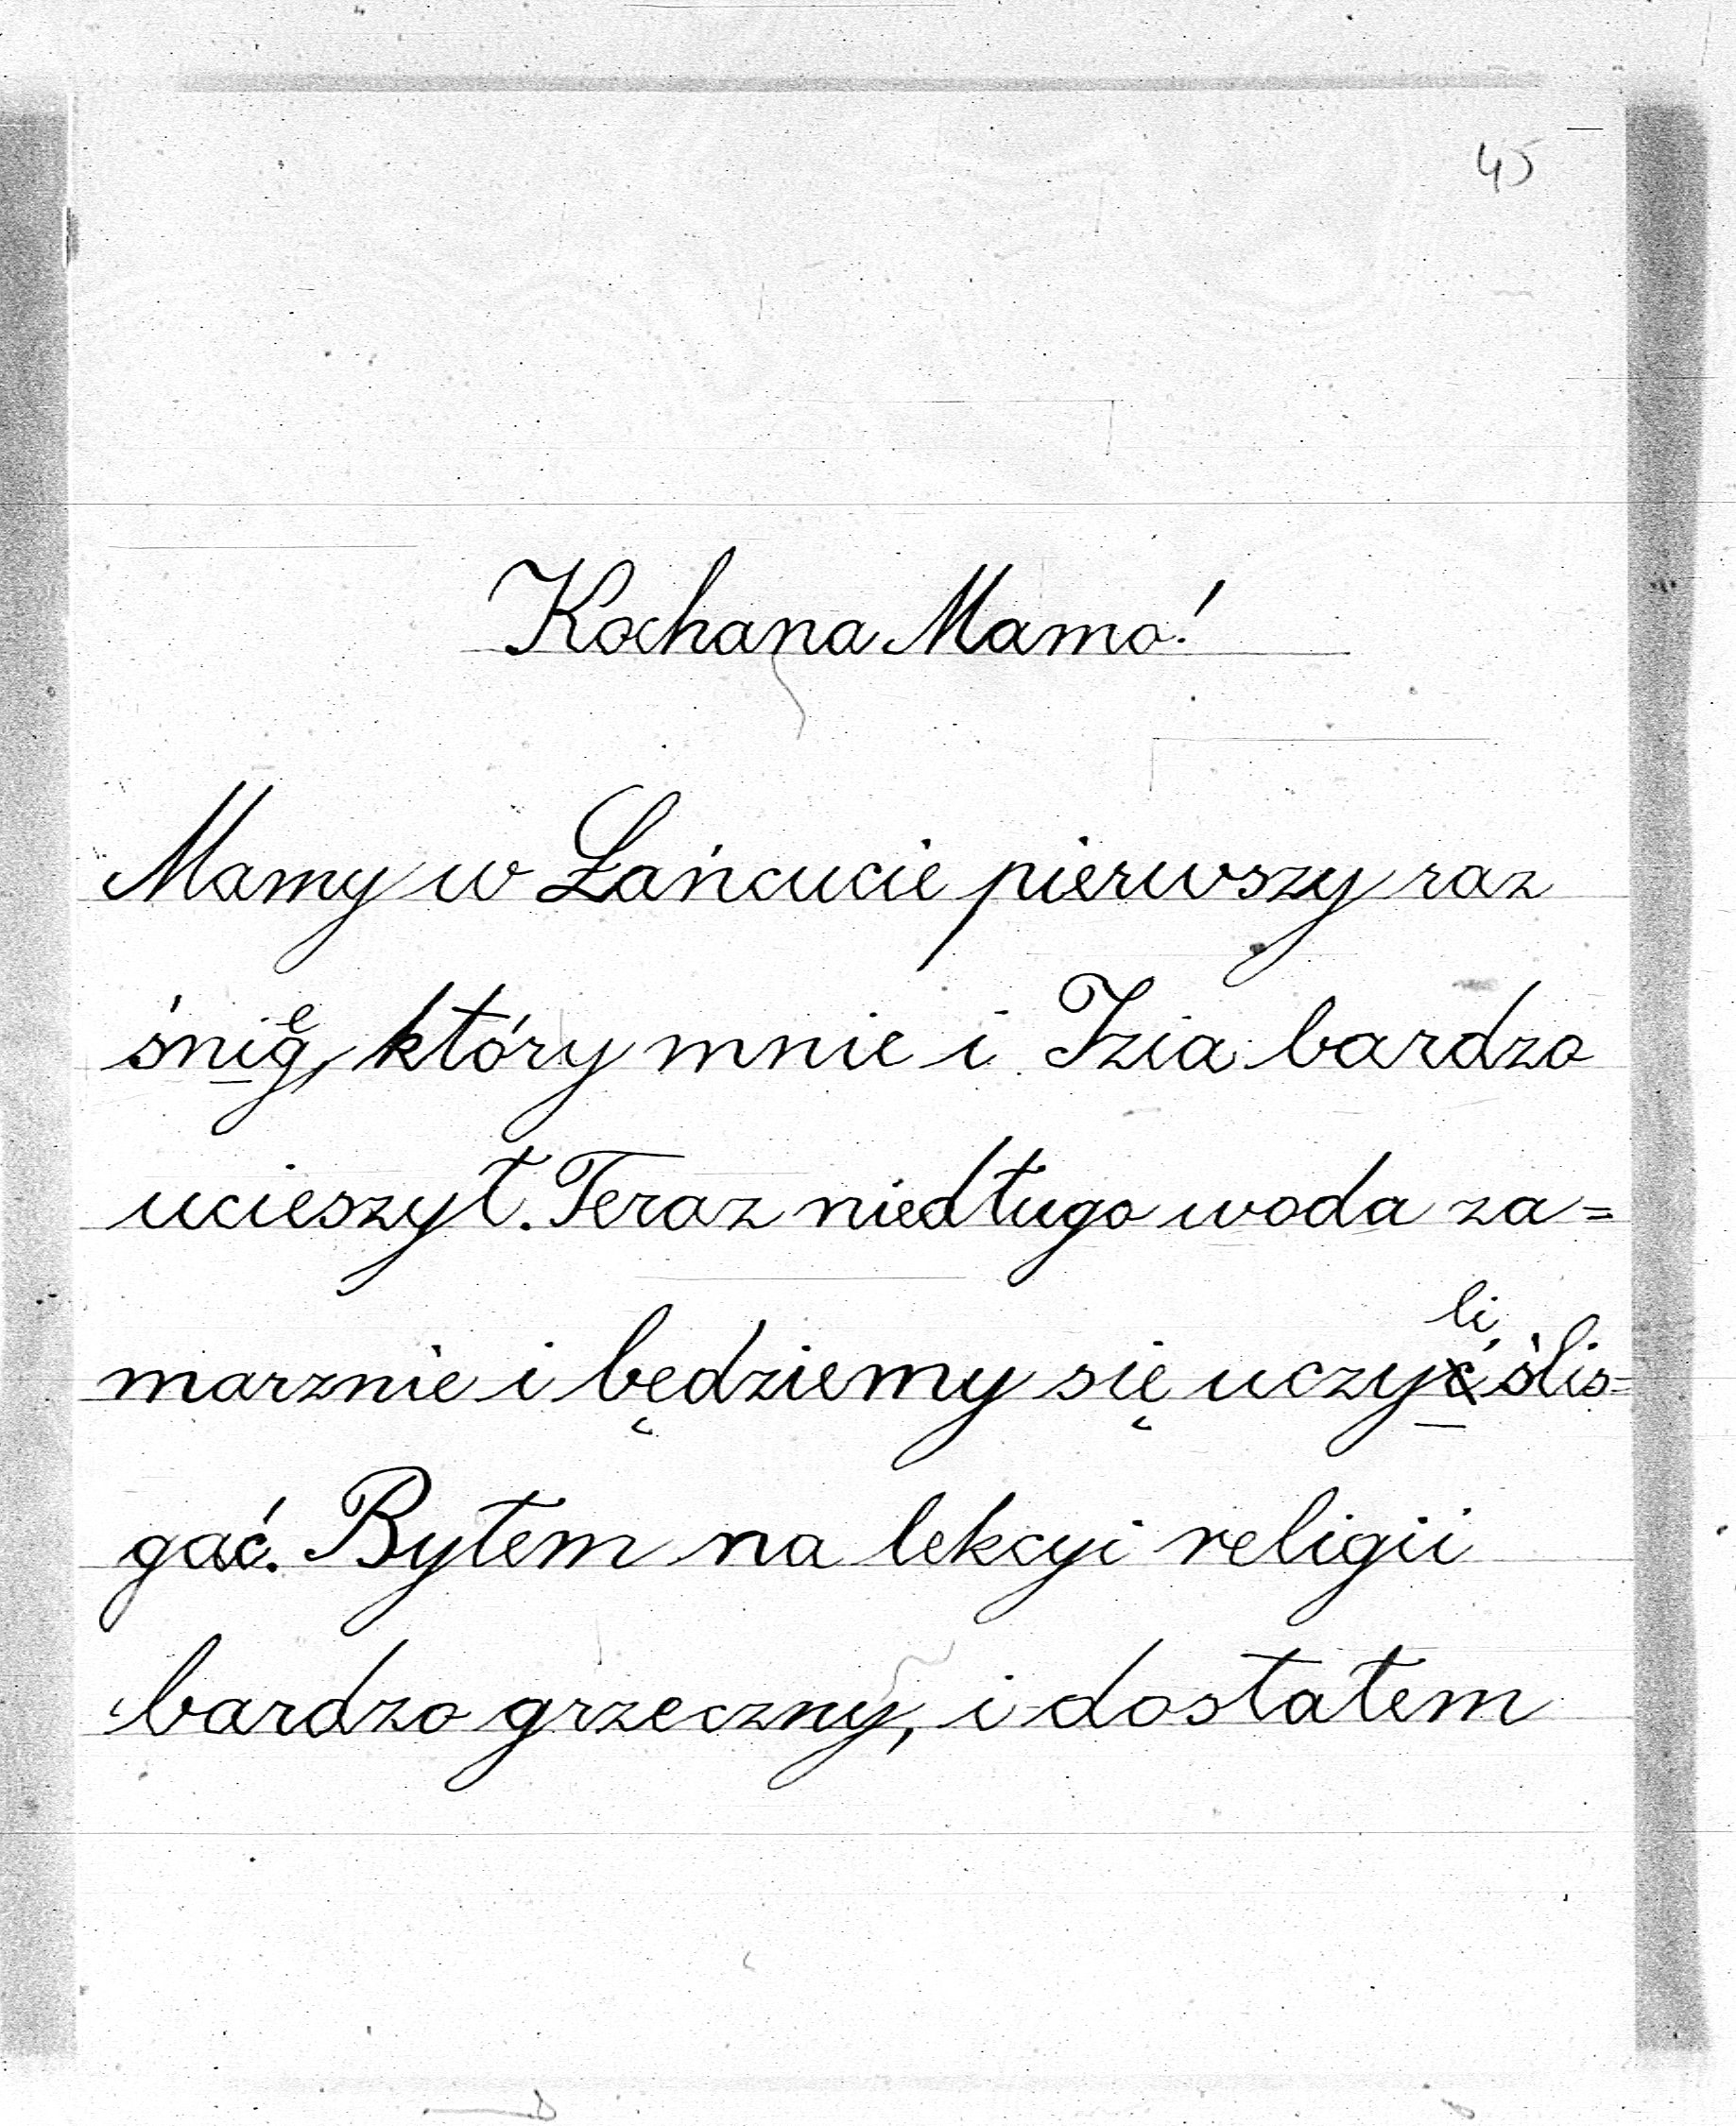 45
Kochana Mamo!
Mamy w Łańcucie pierwszy raz
śnieg, który mnie i Izia bardzo
ucieszył. Teraz niedługo woda za=
marznie i będziemy się uczyli ślis=
gać. Byłem na lekcyi religii
bardzo grzeczny, i dostałem